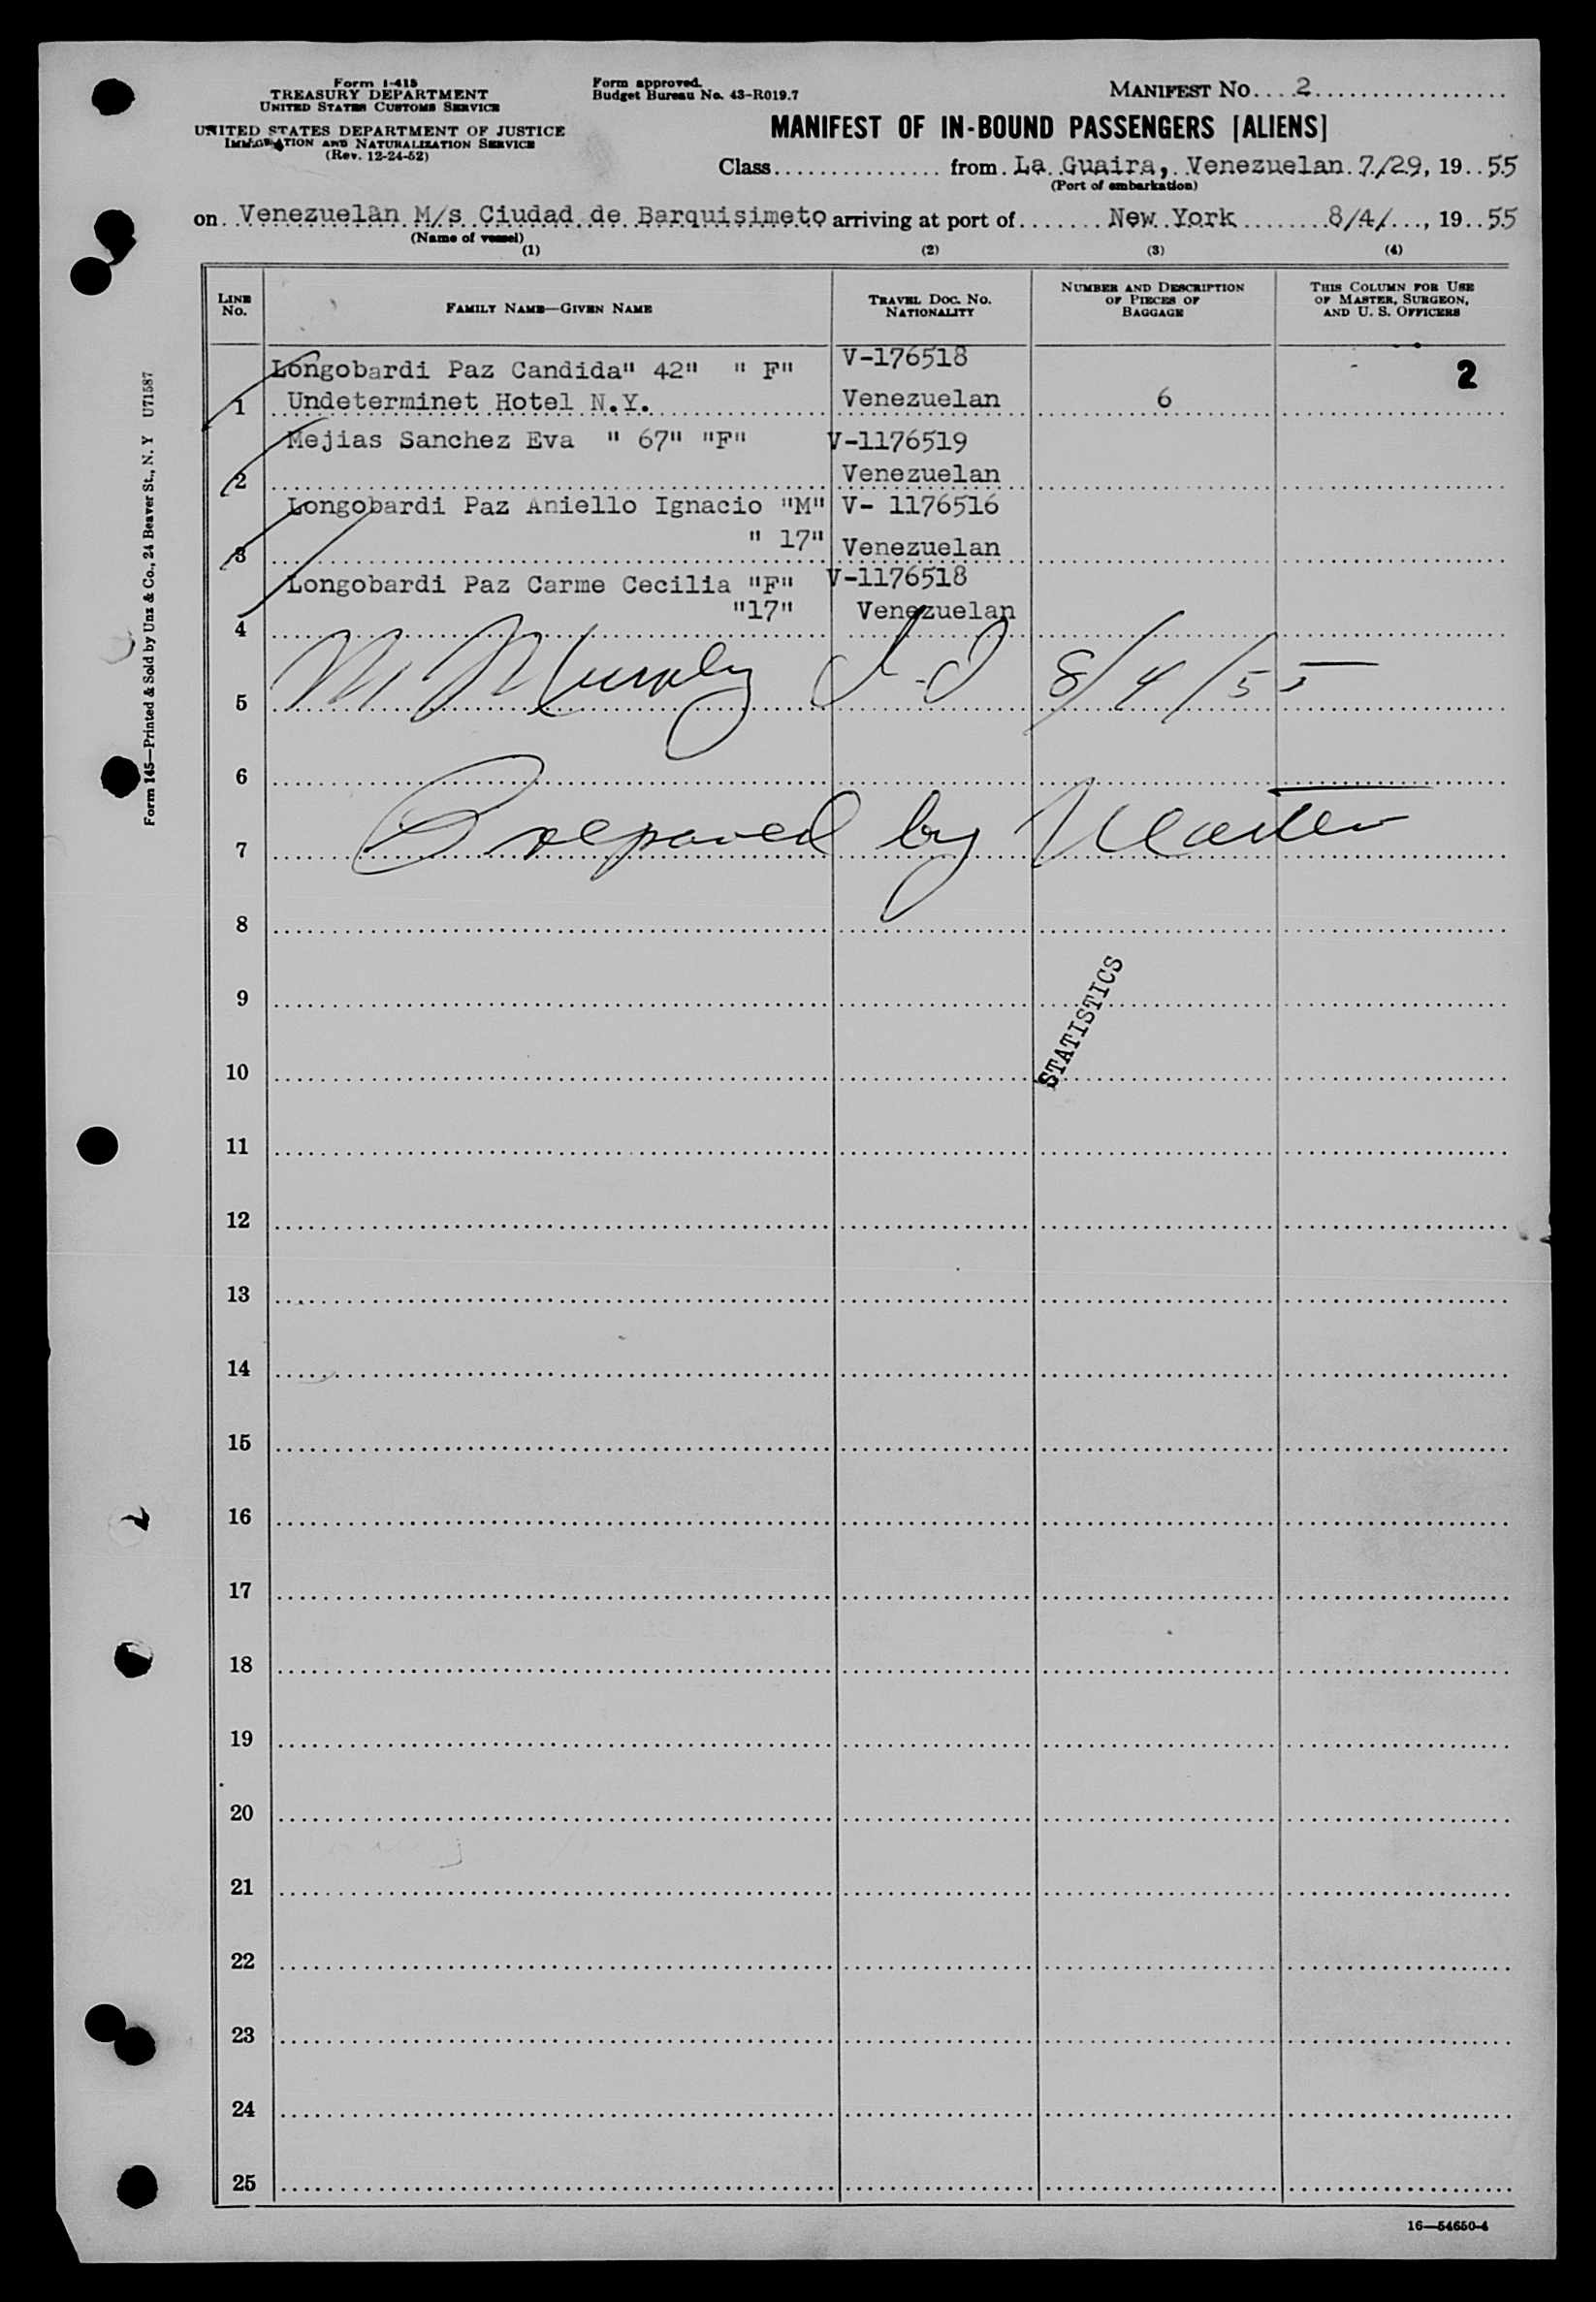 Form I-418
TREASURY DEPARTMENT
UNITED STATES CUSTOMS SERVICE
UNITED STATES DEPARTMENT OF JUSTICE
IMMIGRATION AND NATURALIZATION SERVICE
(Rev. 12-24-52)
Form approved.
Budget Bureau No. 43-R019.7
MANIFEST NO. 2
MANIFEST OF IN-BOUND PASSENGERS [ALIENS]
Class from La Guaira, Venezuelan 7/29, 1955
(Port of embarkation)
on Venezuelan M/s Ciudad de Barquisimeto arriving at port of New York 8/4/, 1955
(Name of vessel)
(1) (2) (3) (4)
LINE NO. FAMILY NAME—GIVEN NAME TRAVEL DOC. NO. NATIONALITY NUMBER AND DESCRIPTION OF PIECES OF BAGGAGE THIS COLUMN FOR USE OF MASTER, SURGEON, AND U. S. OFFICERS
Longobardi Paz Candida" 42" " F" V-176518 2
1 Undeterminet Hotel N.Y. Venezuelan 6
Mejias Sanchez Eva " 67" "F" V-1176519
2 Venezuelan
Longobardi Paz Aniello Ignacio "M" V- 1176516
3 " 17" Venezuelan
Longobardi Paz Carme Cecilia "F" V-1176518
4 "17" Venezuelan
5 M Murphy 8/4/55
6
7 Prepared by Master
8
9
STATISTICS
10
11
12
13
14
15
16
17
18
19
20
21
22
23
24
25
16—54650-4
Form 145—Printed & Sold by Unz & Co., 24 Beaver St., N. Y U71587